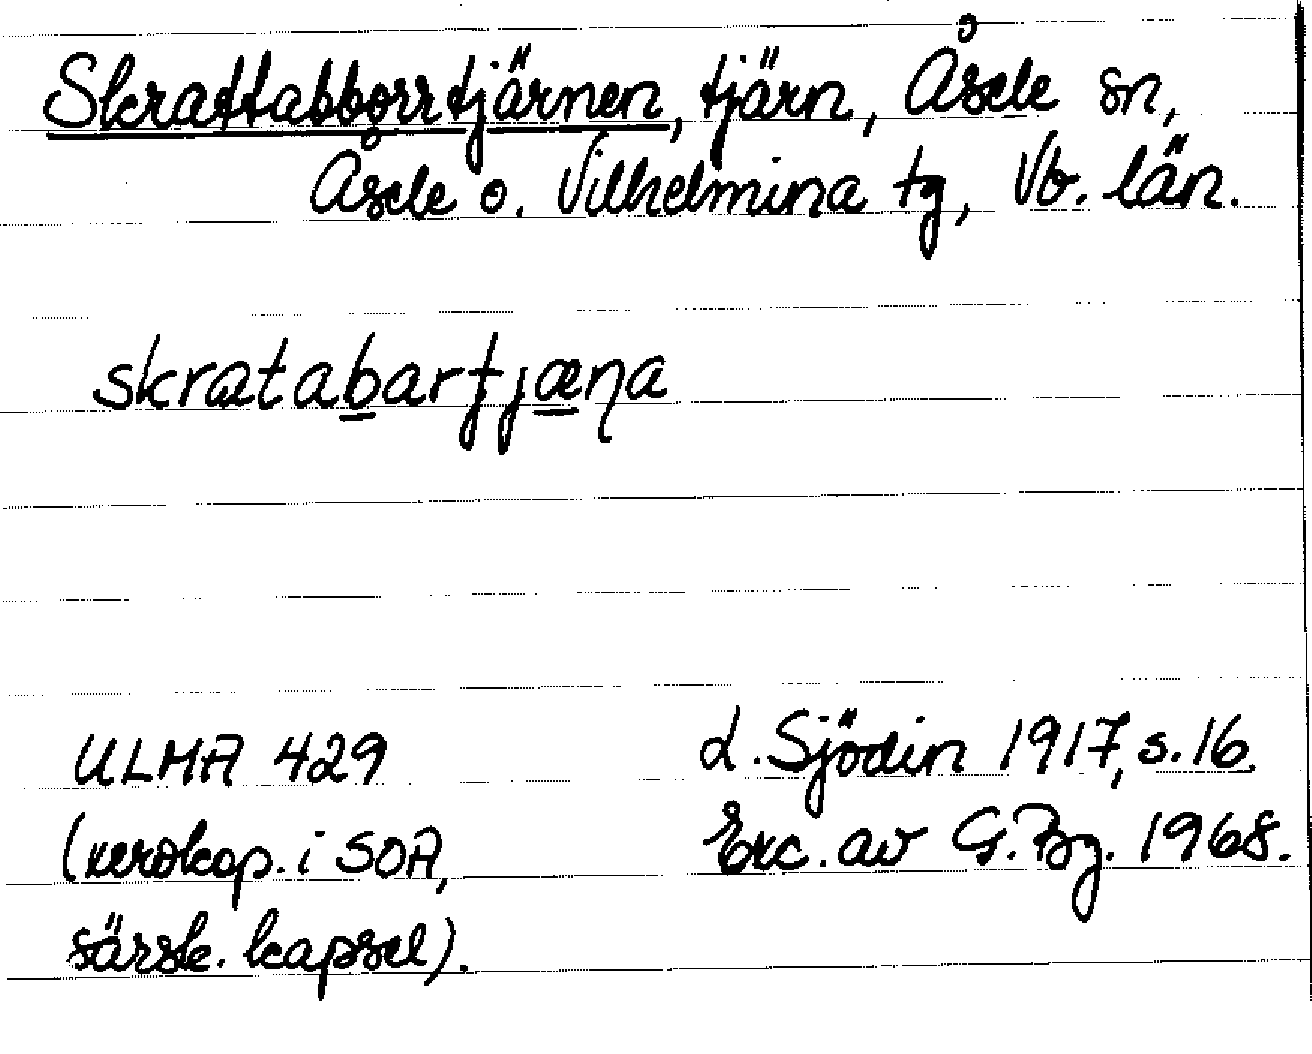 Skrattabborrtjärnen, tjärn, Åsele sn,
Åsele o. Vilhelmina tg, Vb. län.
skratabartjæɳa
ULMA 429
(xerokop. i SOA,
särsk. kapsel).
L. Sjödin 1917, s. 16.
Exc. av G. Bg. 1968.